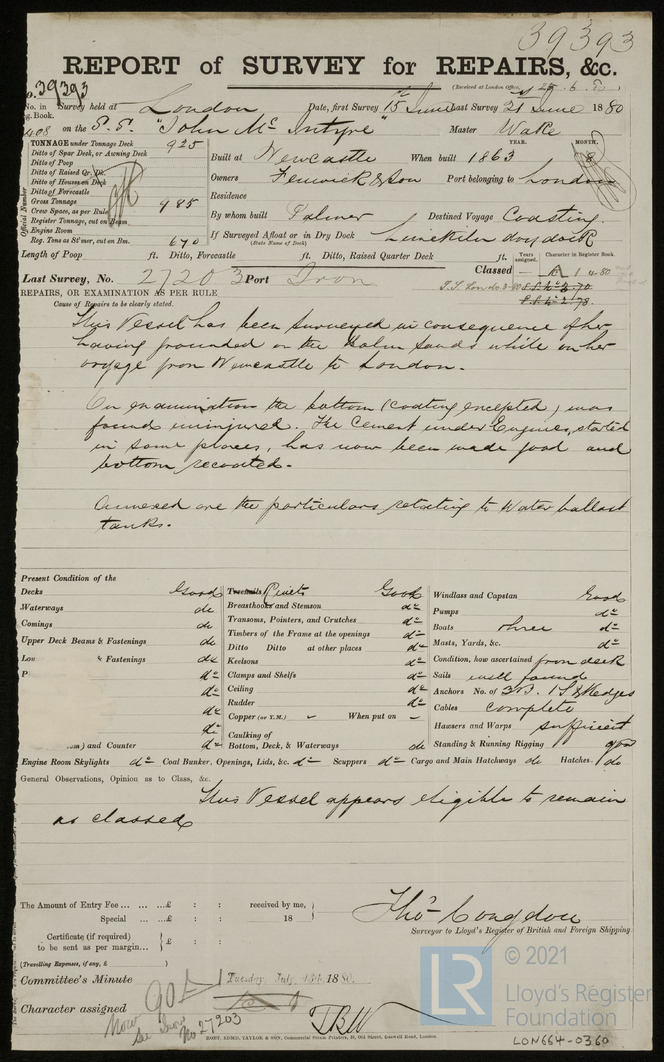 39393
REPORT of SURVEY for REPAIRS, &c.
39393
(Received at London Office
No. in Survey held at London Date, first Survey 15th June Last Survey 21 June 1880
g. Book.
408 on the S.S. "John Mc Intyre" Master Wake
TONNAGE under Tonnage Deck 925
Ditto of Spar Deck, or Awning Deck
Ditto of Poop
Ditto of Raised Qr. Dk.
Ditto of Houses on Deck
Ditto of Forecastle
Gross Tonnage 985
Crew Space, as per Rule
Register Tonnage, cut on Beam
Engine Room
Reg. Tons as St'mer, cut on Bm. 670
Official Number
YEAR. MONTH.
Built at Newcastle When built 1863 8
Owners Fenwick & Son Port belonging to London
Residence
By whom built Palmer Destined Voyage Coasting
If Surveyed Afloat or in Dry Dock Limekiln dry dock
(State Name of Dock)
Length of Poop ft. Ditto, Forecastle ft. Ditto, Raised Quarter Deck ft.
Years assigned. Character in Register Book.
Last Survey, No. 27203 Port Iron Classed A 1 4.80
REPAIRS, OR EXAMINATION AS PER RULE
Cause of Repairs to be clearly stated.
This Vessel has been surveyed in consequence of her
having grounded on the Holm Sands while on her
voyage from Newcastle to London.
On examination the bottom (coating excepted) was
found uninjured. The Cement under Engines, started
in some places, has now been made good and
bottom recoated.
Annexed are the particulars relating to Water ballast
tanks.
Present Condition of the
Decks Good
Waterways do
Comings do
Upper Deck Beams & Fastenings do
Low & Fastenings do
P do
do
do
) and Counter do
Treenails Rivets Good
Breasthooks and Stemson do
Transoms, Pointers, and Crutches do
Timbers of the Frame at the openings do
Ditto Ditto at other places do
Keelsons do
Clamps and Shelfs do
Ceiling do
Rudder do
Copper (or Y.M.) - When put on -
Caulking of
Bottom, Deck, & Waterways do
Windlass and Capstan Good
Pumps do
Boats three do
Masts, Yards, &c. do
Condition, how ascertained from deck
Sails well found
Anchors No. of 3 B. 1 S. & Kedges
Cables complete
Hawsers and Warps sufficient
Standing & Running Rigging good
Engine Room Skylights do Coal Bunker, Openings, Lids, &c. do Scuppers do Cargo and Main Hatchways do Hatches do
General Observations, Opinion as to Class, &c.
This Vessel appears eligible to remain
as classed
The Amount of Entry Fee ... ... ...£ : : received by me,
Special ... ...£ : : 18
Certificate (if required) to be sent as per margin... £ : :
(Travelling Expenses, if any, £ )
Thos Congdon
Surveyor to Lloyd's Register of British and Foreign Shipping
Committee's Minute 90 A 1 Tuesday July 13th 1880.
Character assigned
Now See Iron No 27203
ROBT. EDMD. TAYLOR & SON, Commercial Steam Printers, 19, Old Street, Goswell Road, London.
LR © 2021
Lloyd's Register
Foundation
LON664-0360